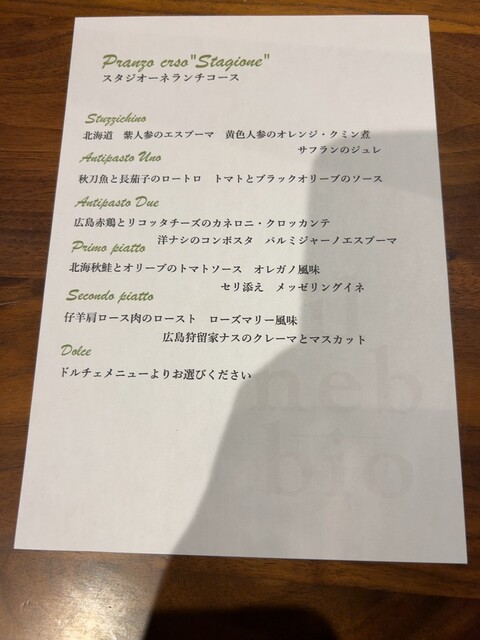 Pranzo crso"Stagione"
スタジオーネランチコース
Stuzzichino
北海道　紫人参のエスプーマ　黄色人参のオレンジ・クミン煮
サフランのジュレ
Antipasto Uno
秋刀魚と長茄子のロートロ　トマトとブラックオリーブのソース
Antipasto Due
広島赤鶏とリコッタチーズのカネロニ・クロッカンテ
洋ナシのコンポスタ　パルミジャーノエスプーマ
Primo piatto
北海秋鮭とオリーブのトマトソース　オレガノ風味
セリ添え　メッゼリングイネ
Secondo piatto
仔羊肩ロース肉のロースト　ローズマリー風味
広島狩留家ナスのクレーマとマスカット
Dolce
ドルチェメニューよりお選びください
neb
bio